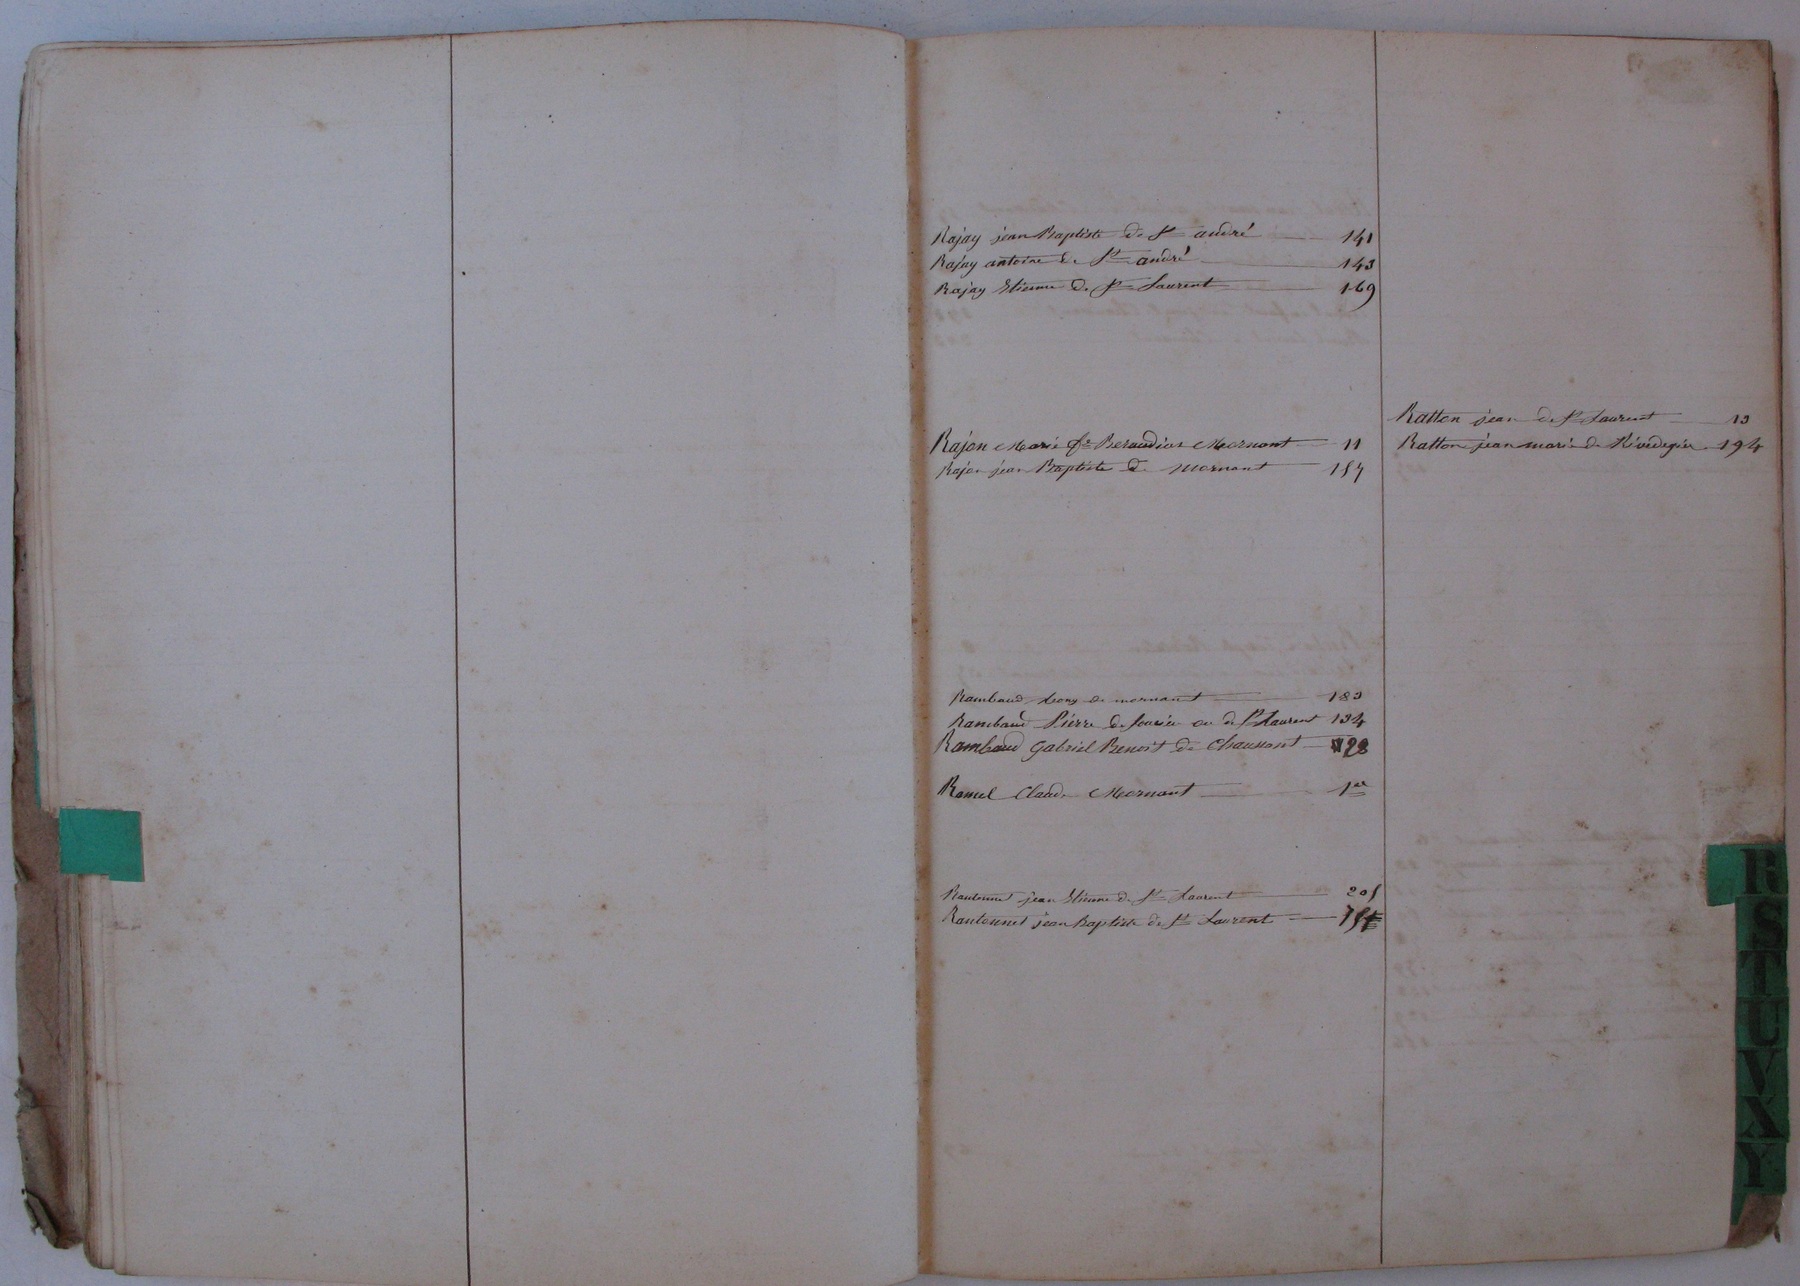 Rajay jean Baptiste de St andré 141
Rajay antoine de St andré 143
Rajay Etienne de St Laurent 169
Rajon Marie fe Beraudier Mornant 11
Rajon jean Baptiste de Mornant 157
Rambaud de mornant 183
Rambaud Pierre de ou de St Laurent 134
Rambaud Gabriel Benoit de Chaussant 128
Ramel Claude Mornant 1er
Rantonnet jean Etienne de St Laurent 205
Rantonnet jean Baptiste de St Laurent
Ratton jean de St Laurent 13
Ratton jean marie de 194
R
S
T
U
V
X
Y